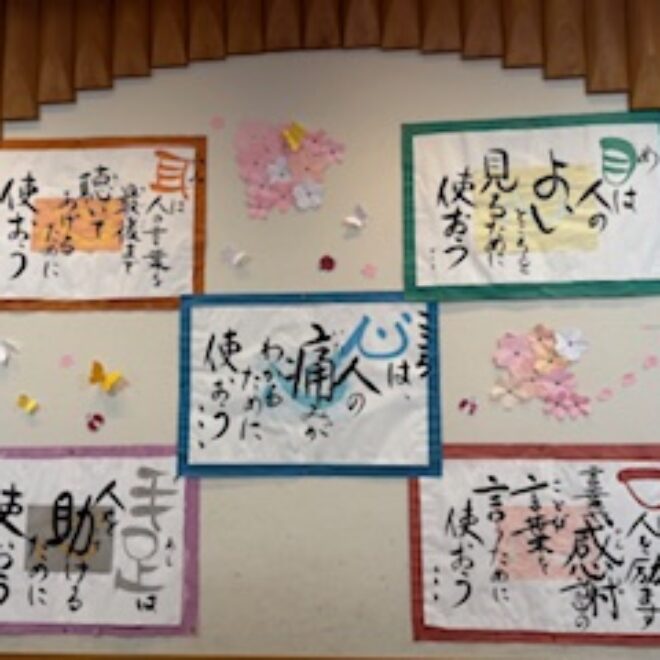 目は
め
人の
よい
ところを
見るために
使おう
耳は
人の言葉を
最後まで
聴いて
あげる
ために
使おう
心は、
こころ
人の
痛みが
わかる
ために
使おう...
口
人を励ます
言葉感謝の
ことば
言葉を
言うために
使おう...
手足は
あし
人を
助ける
ために
使おう